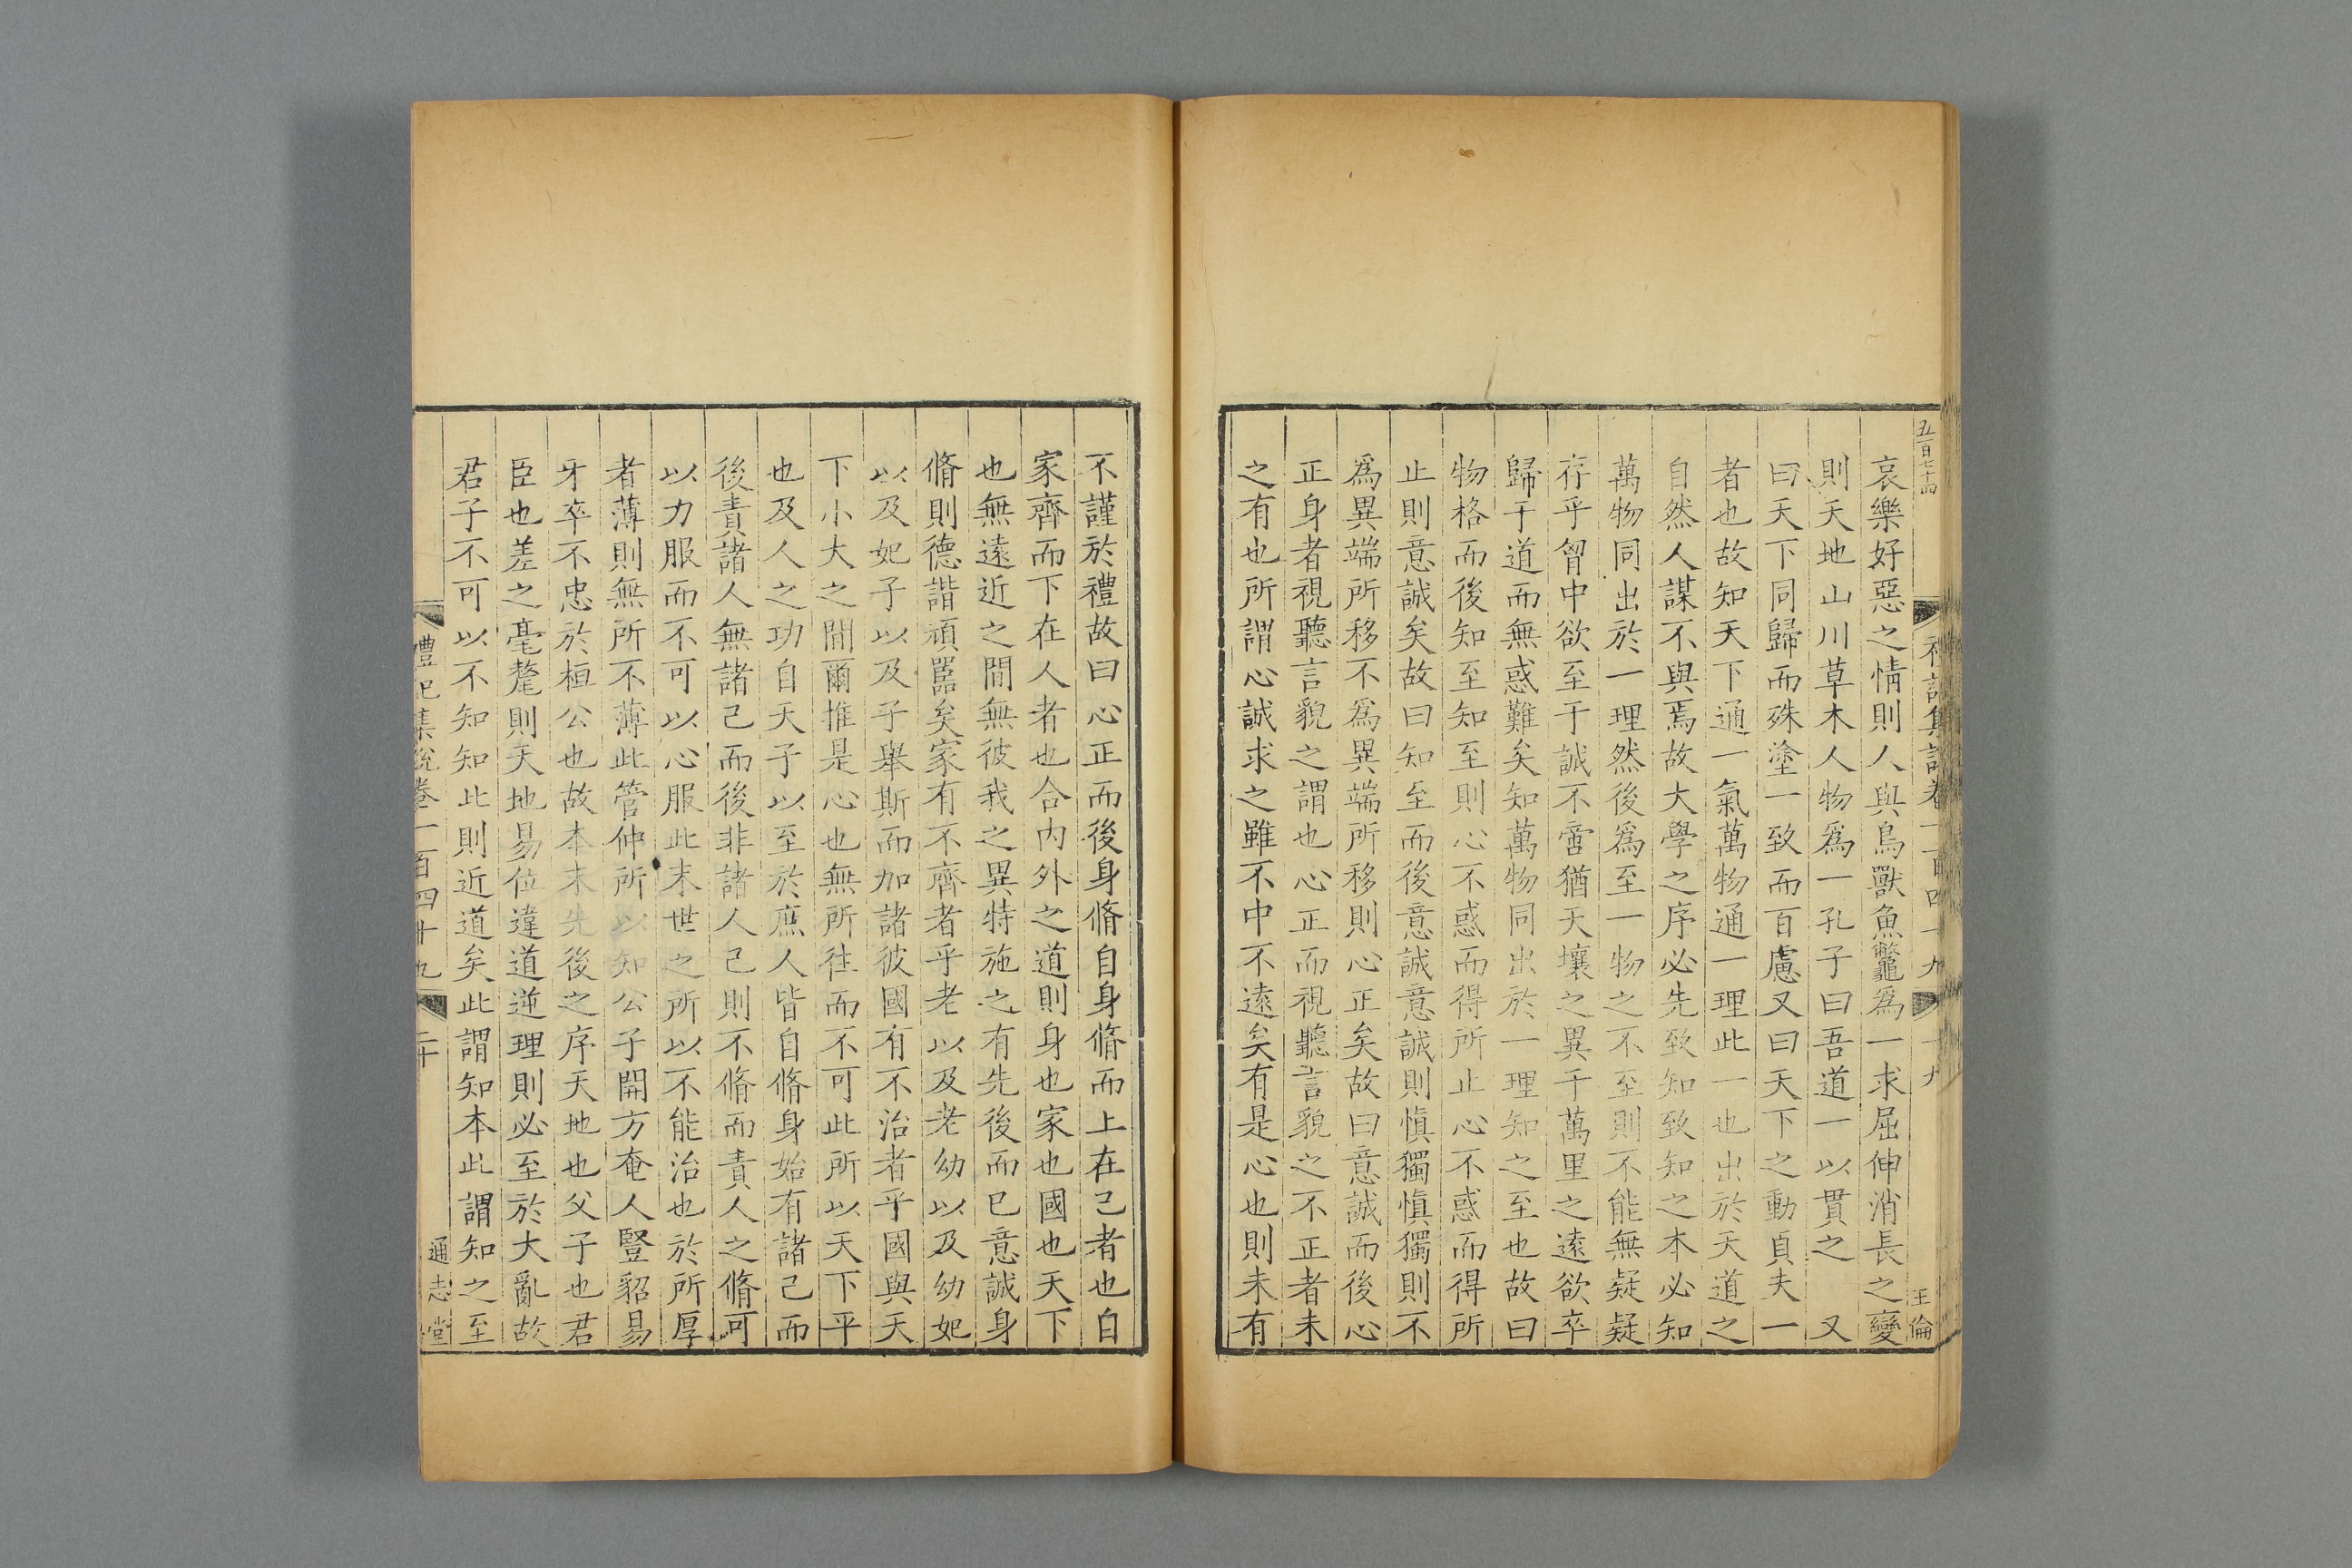 五百七十四
王倫
哀樂好惡之情則人與鳥獸魚鼈爲一求屈伸消長之變
則天地山川草木人物爲一孔子曰吾道一以貫之　又
曰天下同歸而殊塗一致而百慮又曰天下之動貞夫一
者也故知天下通一氣萬物通一理此一也出於天道之
自然人謀不與焉故大學之序必先致知致知之本必知
萬物同出於一理然後爲至一物之不至則不能無疑疑
存乎胷中欲至于誠不啻猶天壤之異千萬里之遠欲卒
歸于道而無惑難矣知萬物同出於一理知之至也故曰
物格而後知至知至則心不惑而得所止心不惑而得所
止則意誠矣故曰知至而後意誠意誠則慎獨慎獨則不
爲異端所移不爲異端所移則心正矣故曰意誠而後心
正身者視聽言貌之謂也心正而視聽言貌之不正者未
之有也所謂心誠求之雖不中不遠矣有是心也則未有
不謹於禮故曰心正而後身脩自身脩而上在己者也自
家齊而下在人者也合內外之道則身也家也國也天下
也無遠近之間無彼我之異特施之有先後而已意誠身
脩則德諧頑嚚矣家有不齊者乎老以及老幼以及幼妃
以及妃子以及子舉斯而加諸彼國有不治者乎國與天
下小大之間爾推是心也無所往而不可此所以天下平
也及人之功自天子以至於庶人皆自脩身始有諸己而
後責諸人無諸己而後非諸人己則不脩而責人之脩可
以力服而不可以心服此末世之所以不能治也於所厚
者薄則無所不薄此管仲所以知公子開方奄人豎貂易
牙卒不忠於桓公也故本末先後之序天地也父子也君
臣也差之毫釐則天地易位違道逆理則必至於大亂故
君子不可以不知知此則近道矣此謂知本此謂知之至
禮記集說卷一百四十九
二十
通志堂